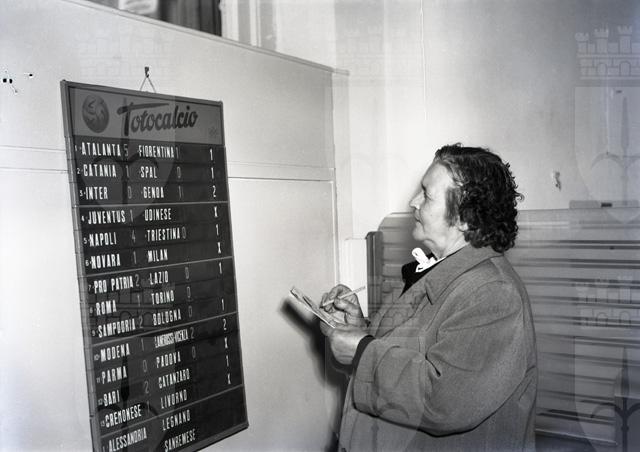 Totocalcio
1 ATALANTA 5 FIORENTINA 1 1
2 CATANIA 1 SPAL 0 1
3 INTER 0 GENOA 1 2
4 JUVENTUS 1 UDINESE X
5 NAPOLI 4 TRIESTINA 0 1
6 NOVARA 1 MILAN X
7 PRO PATRIA 2 LAZIO 0 1
8 ROMA TORINO 0
9 SAMPDORIA 2 BOLOGNA 1
10 MODENA 1 LANEROSSI-VICENZA 2 2
11 PARMA 0 PADOVA 0 X
12 BARI 2 CATANZARO 1
13 CREMONESE LIVORNO X
ALESSANDRIA LEGNANO
SANREMESE